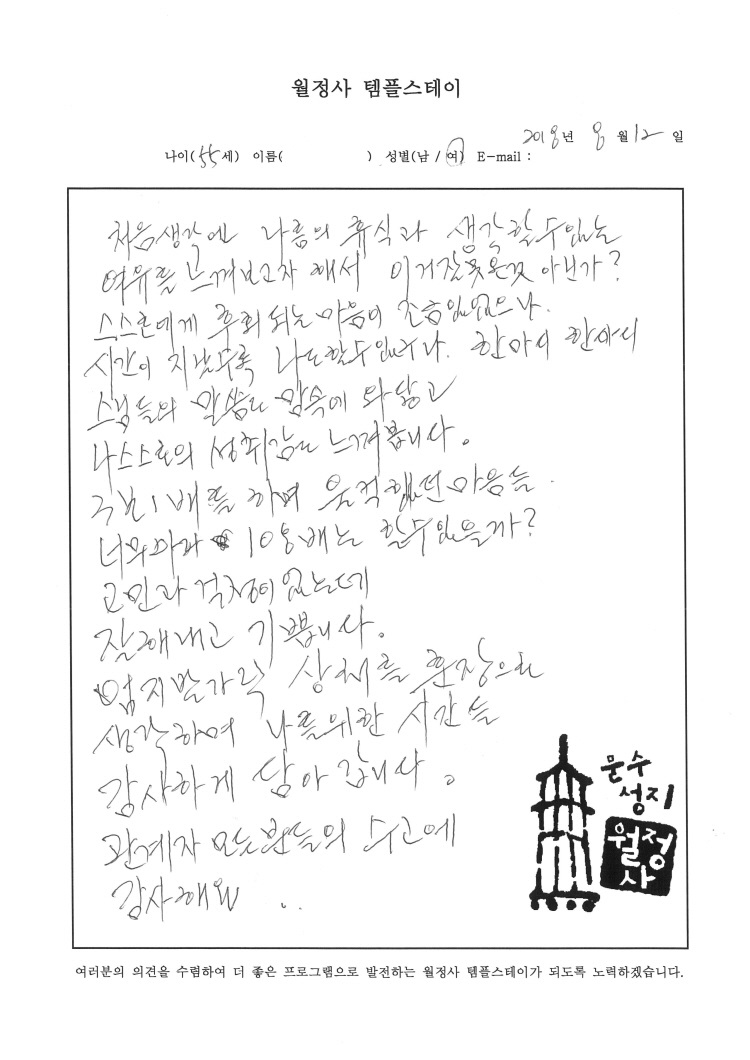 월정사 템플스테이
2018년 8월 12일
나이(55세) 이름( ) 성별(남 / 여) E-mail :
처음생각엔 나름의 휴식과 생각할수있는
여유를 느껴보고자 해서 이거잘못온것 아닌가?
스스로에게 후회되는 마음이 조금있었으나.
시간이 지날수록 나도할수있구나. 한마디 한마디
스님들의 말씀도 맘속에 와닿고
나스스로의 성취감도 느껴봅니다.
1배를 하며 울컥했던마음들.
너와마과 108배는 할수있을까?
고민과 걱정이 있는데
잘해내고 기쁩니다.
엄지발가락 상처를 훈장으로
생각하며 나를위한 시간들
감사하게 담아 갑니다.
관계자 모든분들의 수고에
감사해요 ..
문수
성지
월정
사
여러분의 의견을 수렴하여 더 좋은 프로그램으로 발전하는 월정사 템플스테이가 되도록 노력하겠습니다.